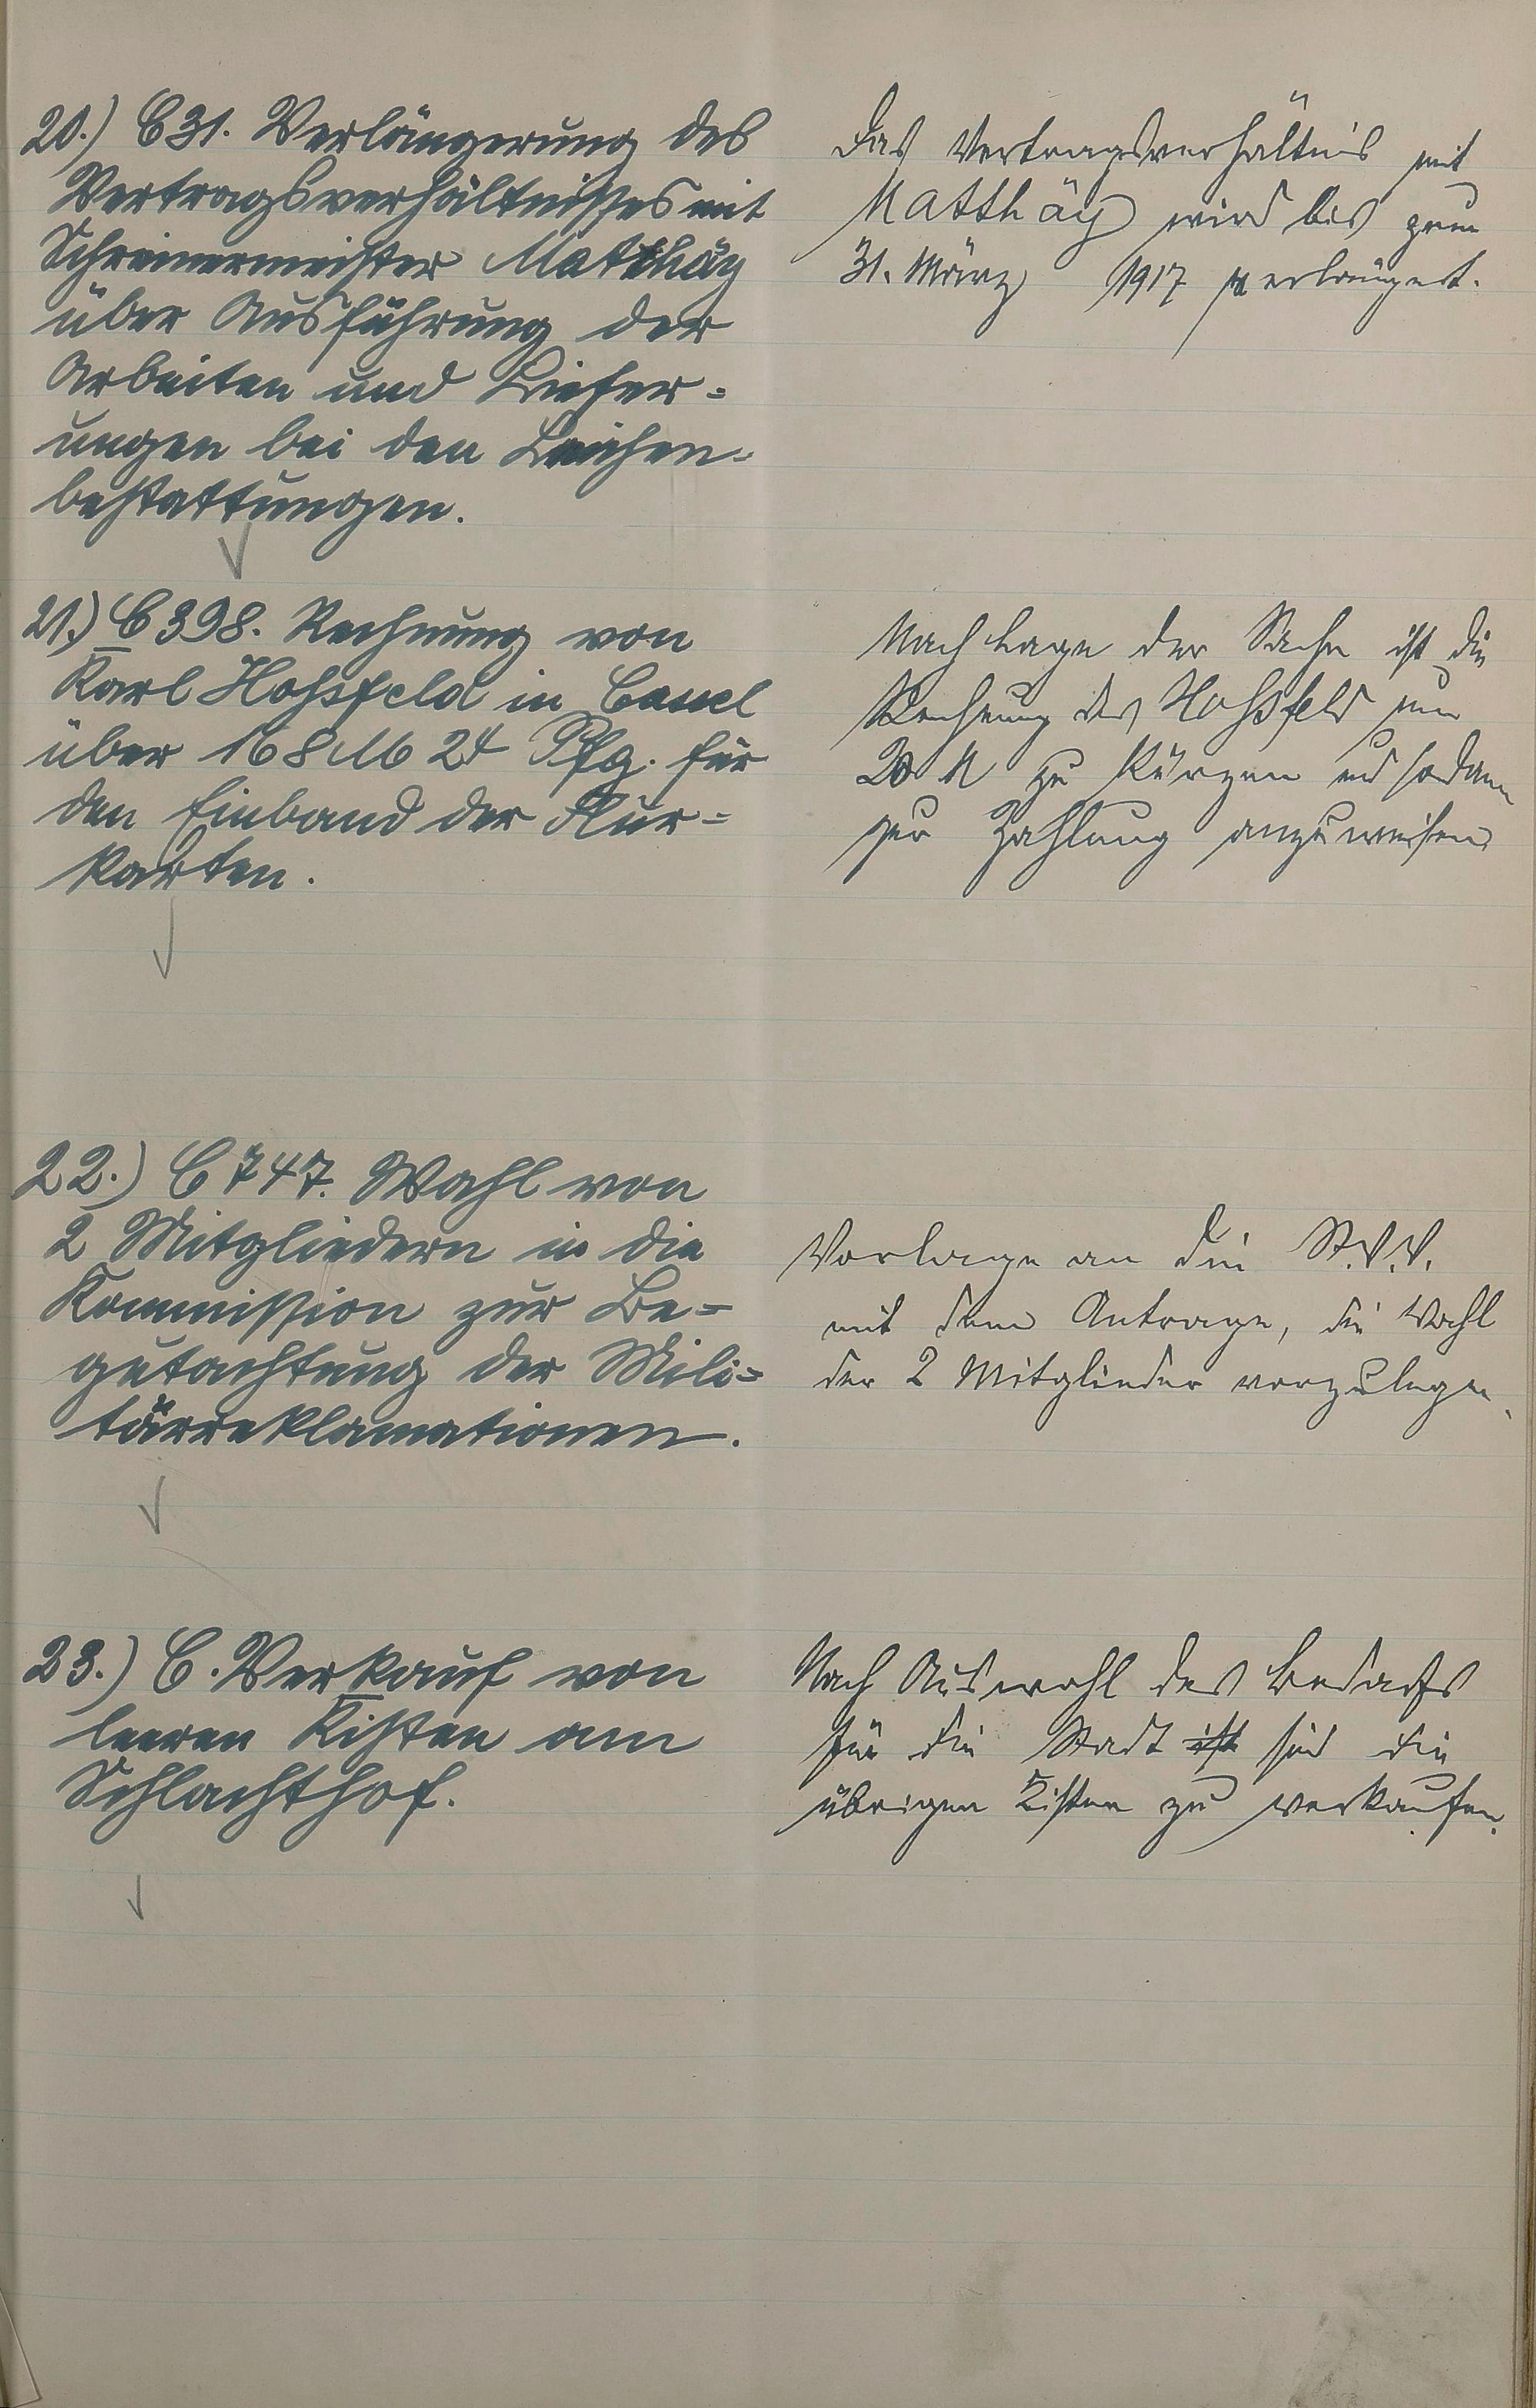 20.) C 31. Verlängerung des
Vertragsverhältnisses mit
Schreinermeister Matthäy
über Ausführung der
Arbeiten und Liefer-
ungen bei den Leichen-
bestattungen.
Das Vertragsverhältnis mit
Matthäy wird bis zum
31. März 1917 verlängert.
21.) C 398. Rechnung von
Karl Hohsfeld in Cassel
über 168 M 24 Pfg. für
den Einband der Flur-
karten.
Nach Lage der Sache ist die
Rechnung des Hohsfeld um
20 M zu kürzen und sodann
zur Zahlung anzuweisen.
22.) C 747. Wahl von
2 Mitgliedern in die
Kommission zur Be-
gutachtung der Mili-
tärreklamationen.
Vorlage an die St.V.V.
mit dem Antrage, die Wahl
der 2 Mitglieder vorzulegen.
23.) C. Verkauf von
leeren Kisten am
Schlachthof.
Nach Auswahl des Bedarfs
für die Stadt ist sind die
übrigen Kisten zu verkaufen.